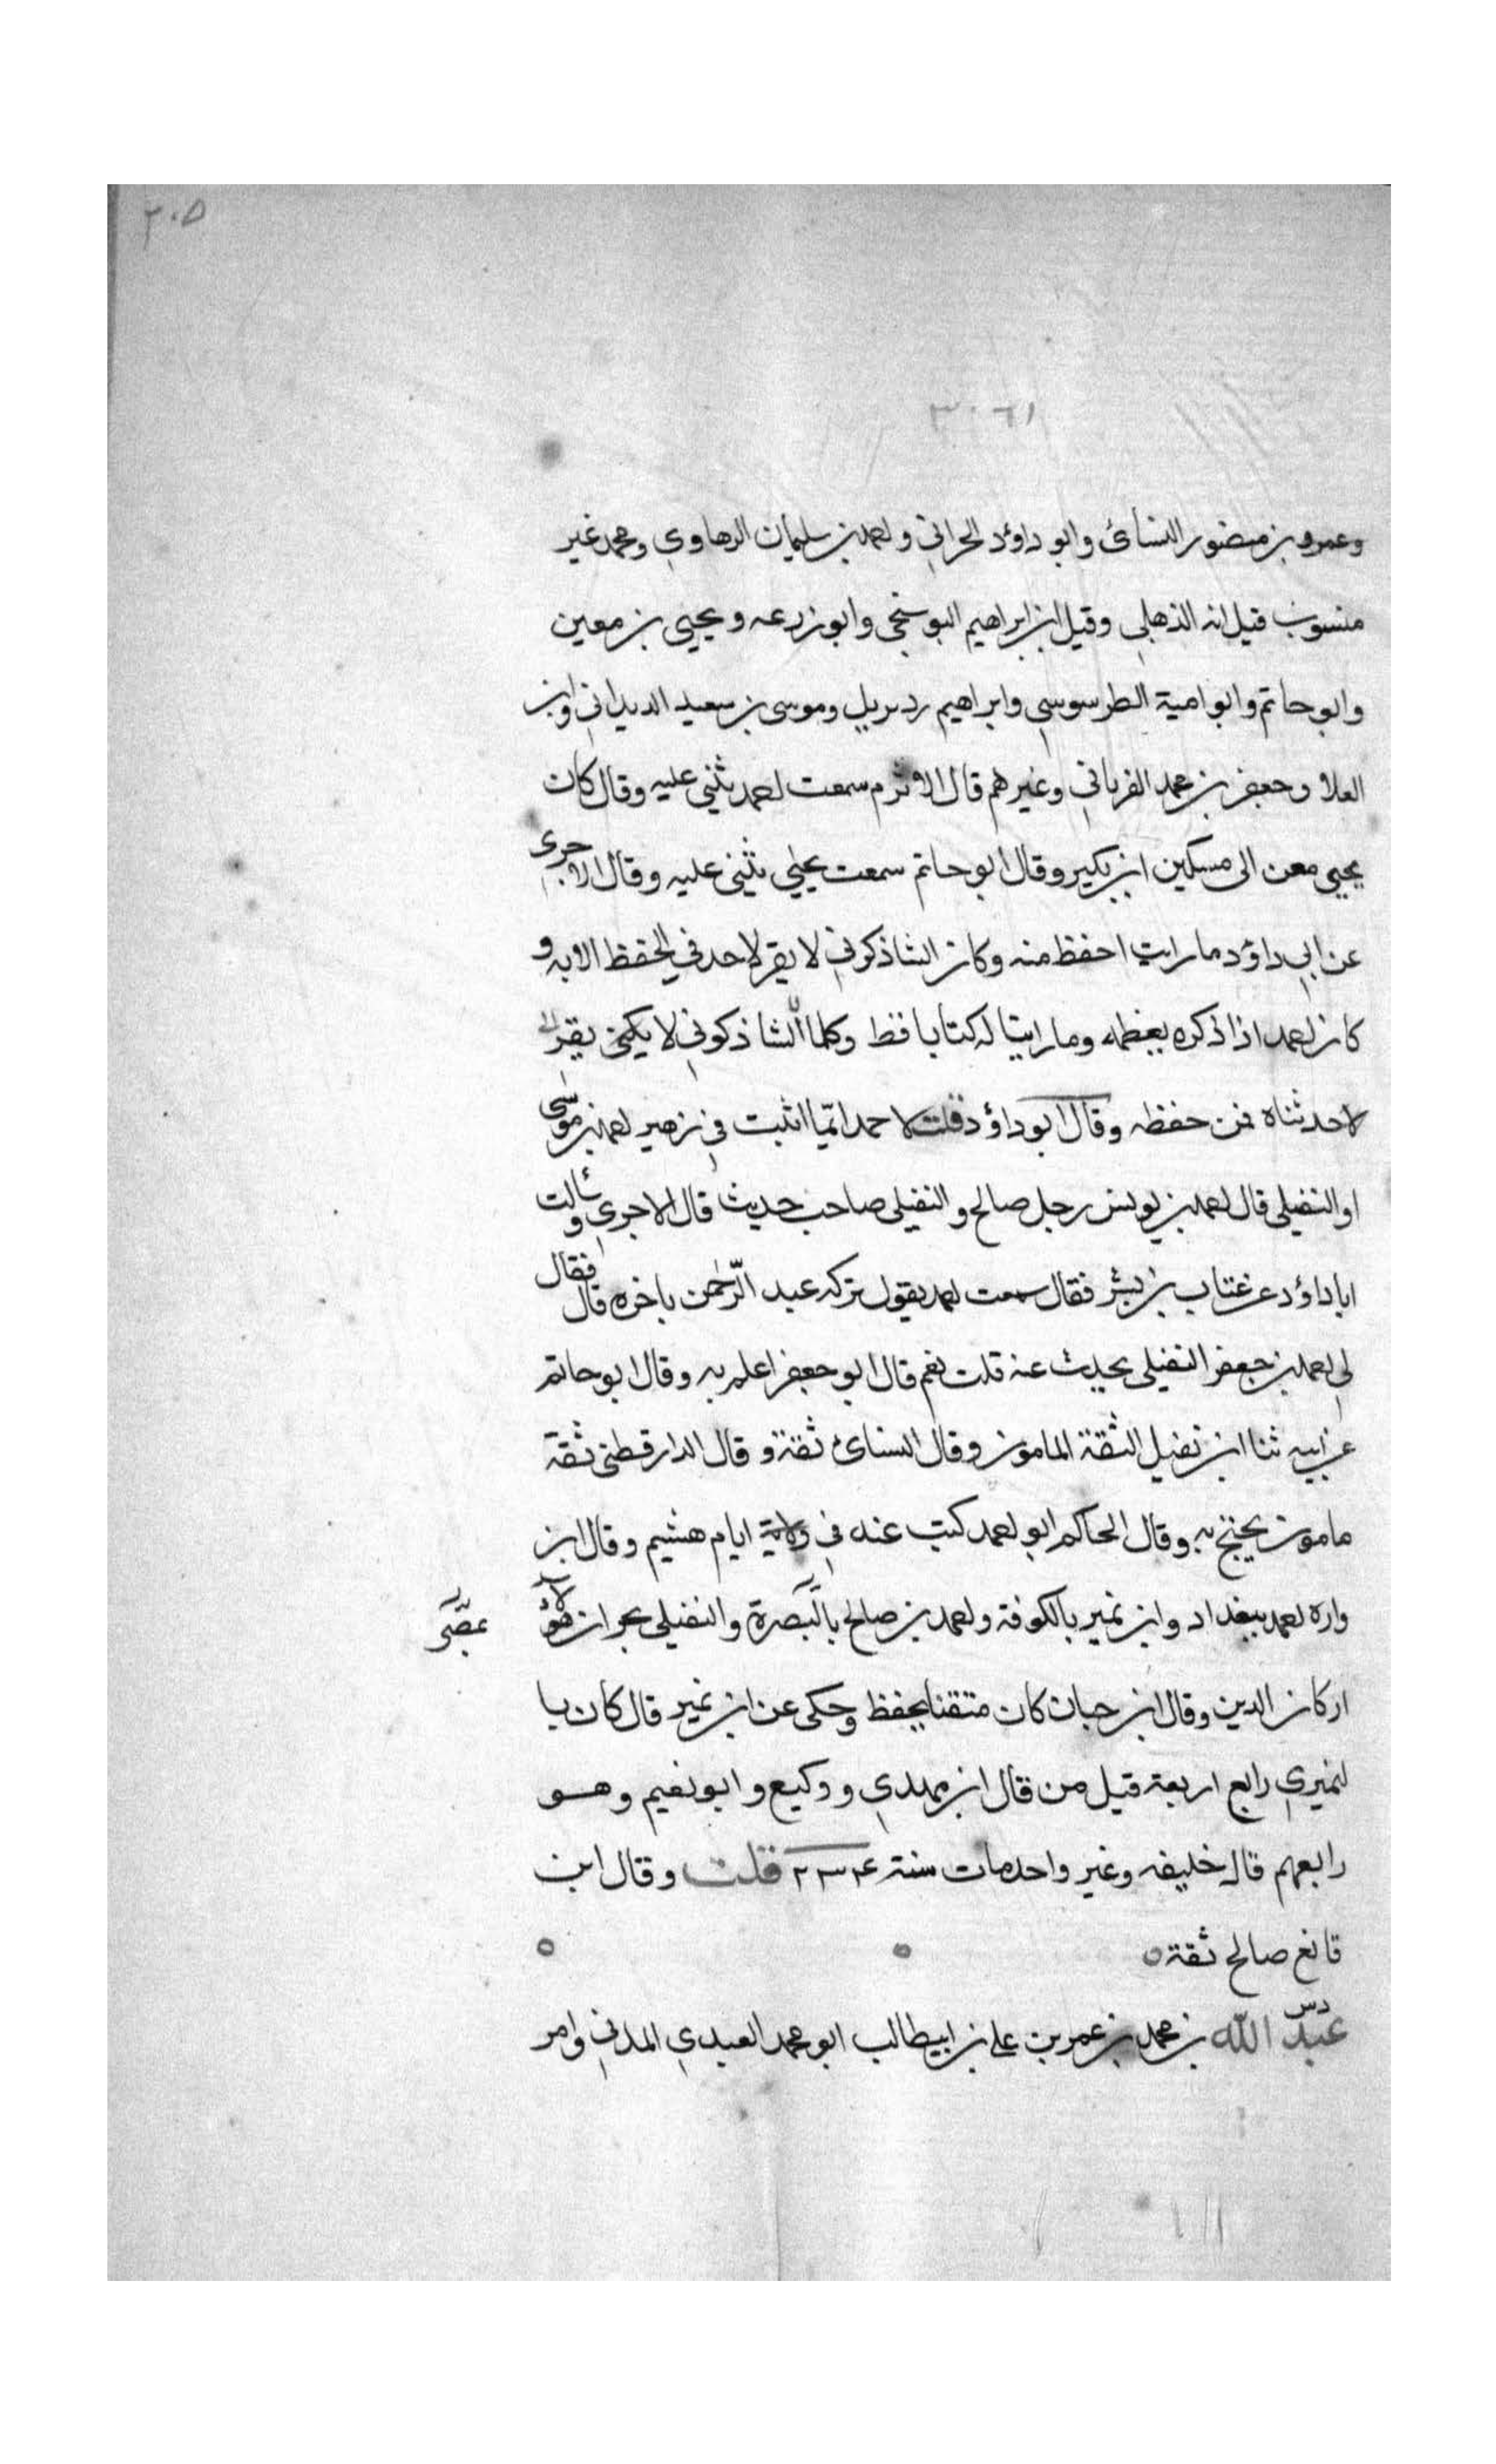 ٢٠٥
٣٠٦١
وعمرو بن منصور النسائ وابو داؤد الحراني واحمد بن سليمان الرهاوي ومحمد غير
منسوب قيل انه الذهلي وقيل ابن ابراهيم البوسنجي وابو زرعه ويحيى بن معين
وابو حاتم وابو امية الطرسوسي وابراهيم وموسى بن سعيد الديداني وابن
العلا وجعفر بن محمد الفرياني وغيرهم قال الاثرم سمعت احمد يثني عليه وقال كان
يحيى معن الى مسكين ابن بكير وقال ابو حاتم سمعت يحيى يثنى عليه وقال الاجرى
عن ابي داؤد ما رايت احفظ منه وكان الشاذكوني لا يقر لاحد في الحفظ الا به و
كان احمد اذا ذكره يعظمه وما راينا له كتابا قط وكلما الشاذكوني لا يقر
لاحد ثناه فمن حفظه وقال ابو داؤد قلت لاحمد ايّما اثبت في زهير احمد بن موسى
او النفيلى قال احمد بن يونس رجل صالح والنفيلى صاحب حديث قال الاجري وسألت
ابا داؤد عن عتاب بن بشر فقال سمعت احمد يقول تركه عبد الرّحمن باخره قال فقال
لى احمد بن جعفر النفيلى يحدث عنه قلت نعم قال ابو جعفر اعلم به وقال ابو حاتم
عن ابيه ثنا ابن نفيل الثقة المامون وقال النسائ ثقة وقال الدارقطنى ثقة
مامون يحتج به وقال الحاكم ابو احمد كتب عنه في ولاية ايام هشيم وقال ابن
واره احمد ببغداد وابن نمير بالكوفة واحمد بن صالح بالبصرة والنفيلى بحران هؤلاء
بمصر
اركان الدين وقال ابن حبان كان متقنا يحفظ وحكى عن ابن نمير قال كان يا
لنميري رابع اربعة قيل من قال ابن مهدي ووكيع وابو نعيم وهو
رابعهم قال خليفه وغير واحد مات سنة ٢٣٤ قلت وقال ابن
قانع صالح ثقة
دس
عبد الله بن محمد بن عمر بن على بن ابيطالب ابو محمد العبدي المدني وامر